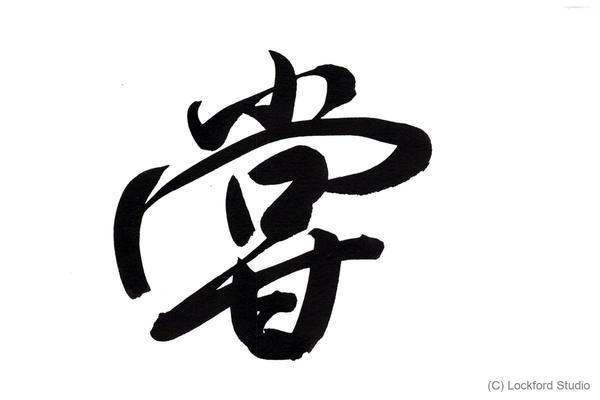 甞
(C) Lockford Studio